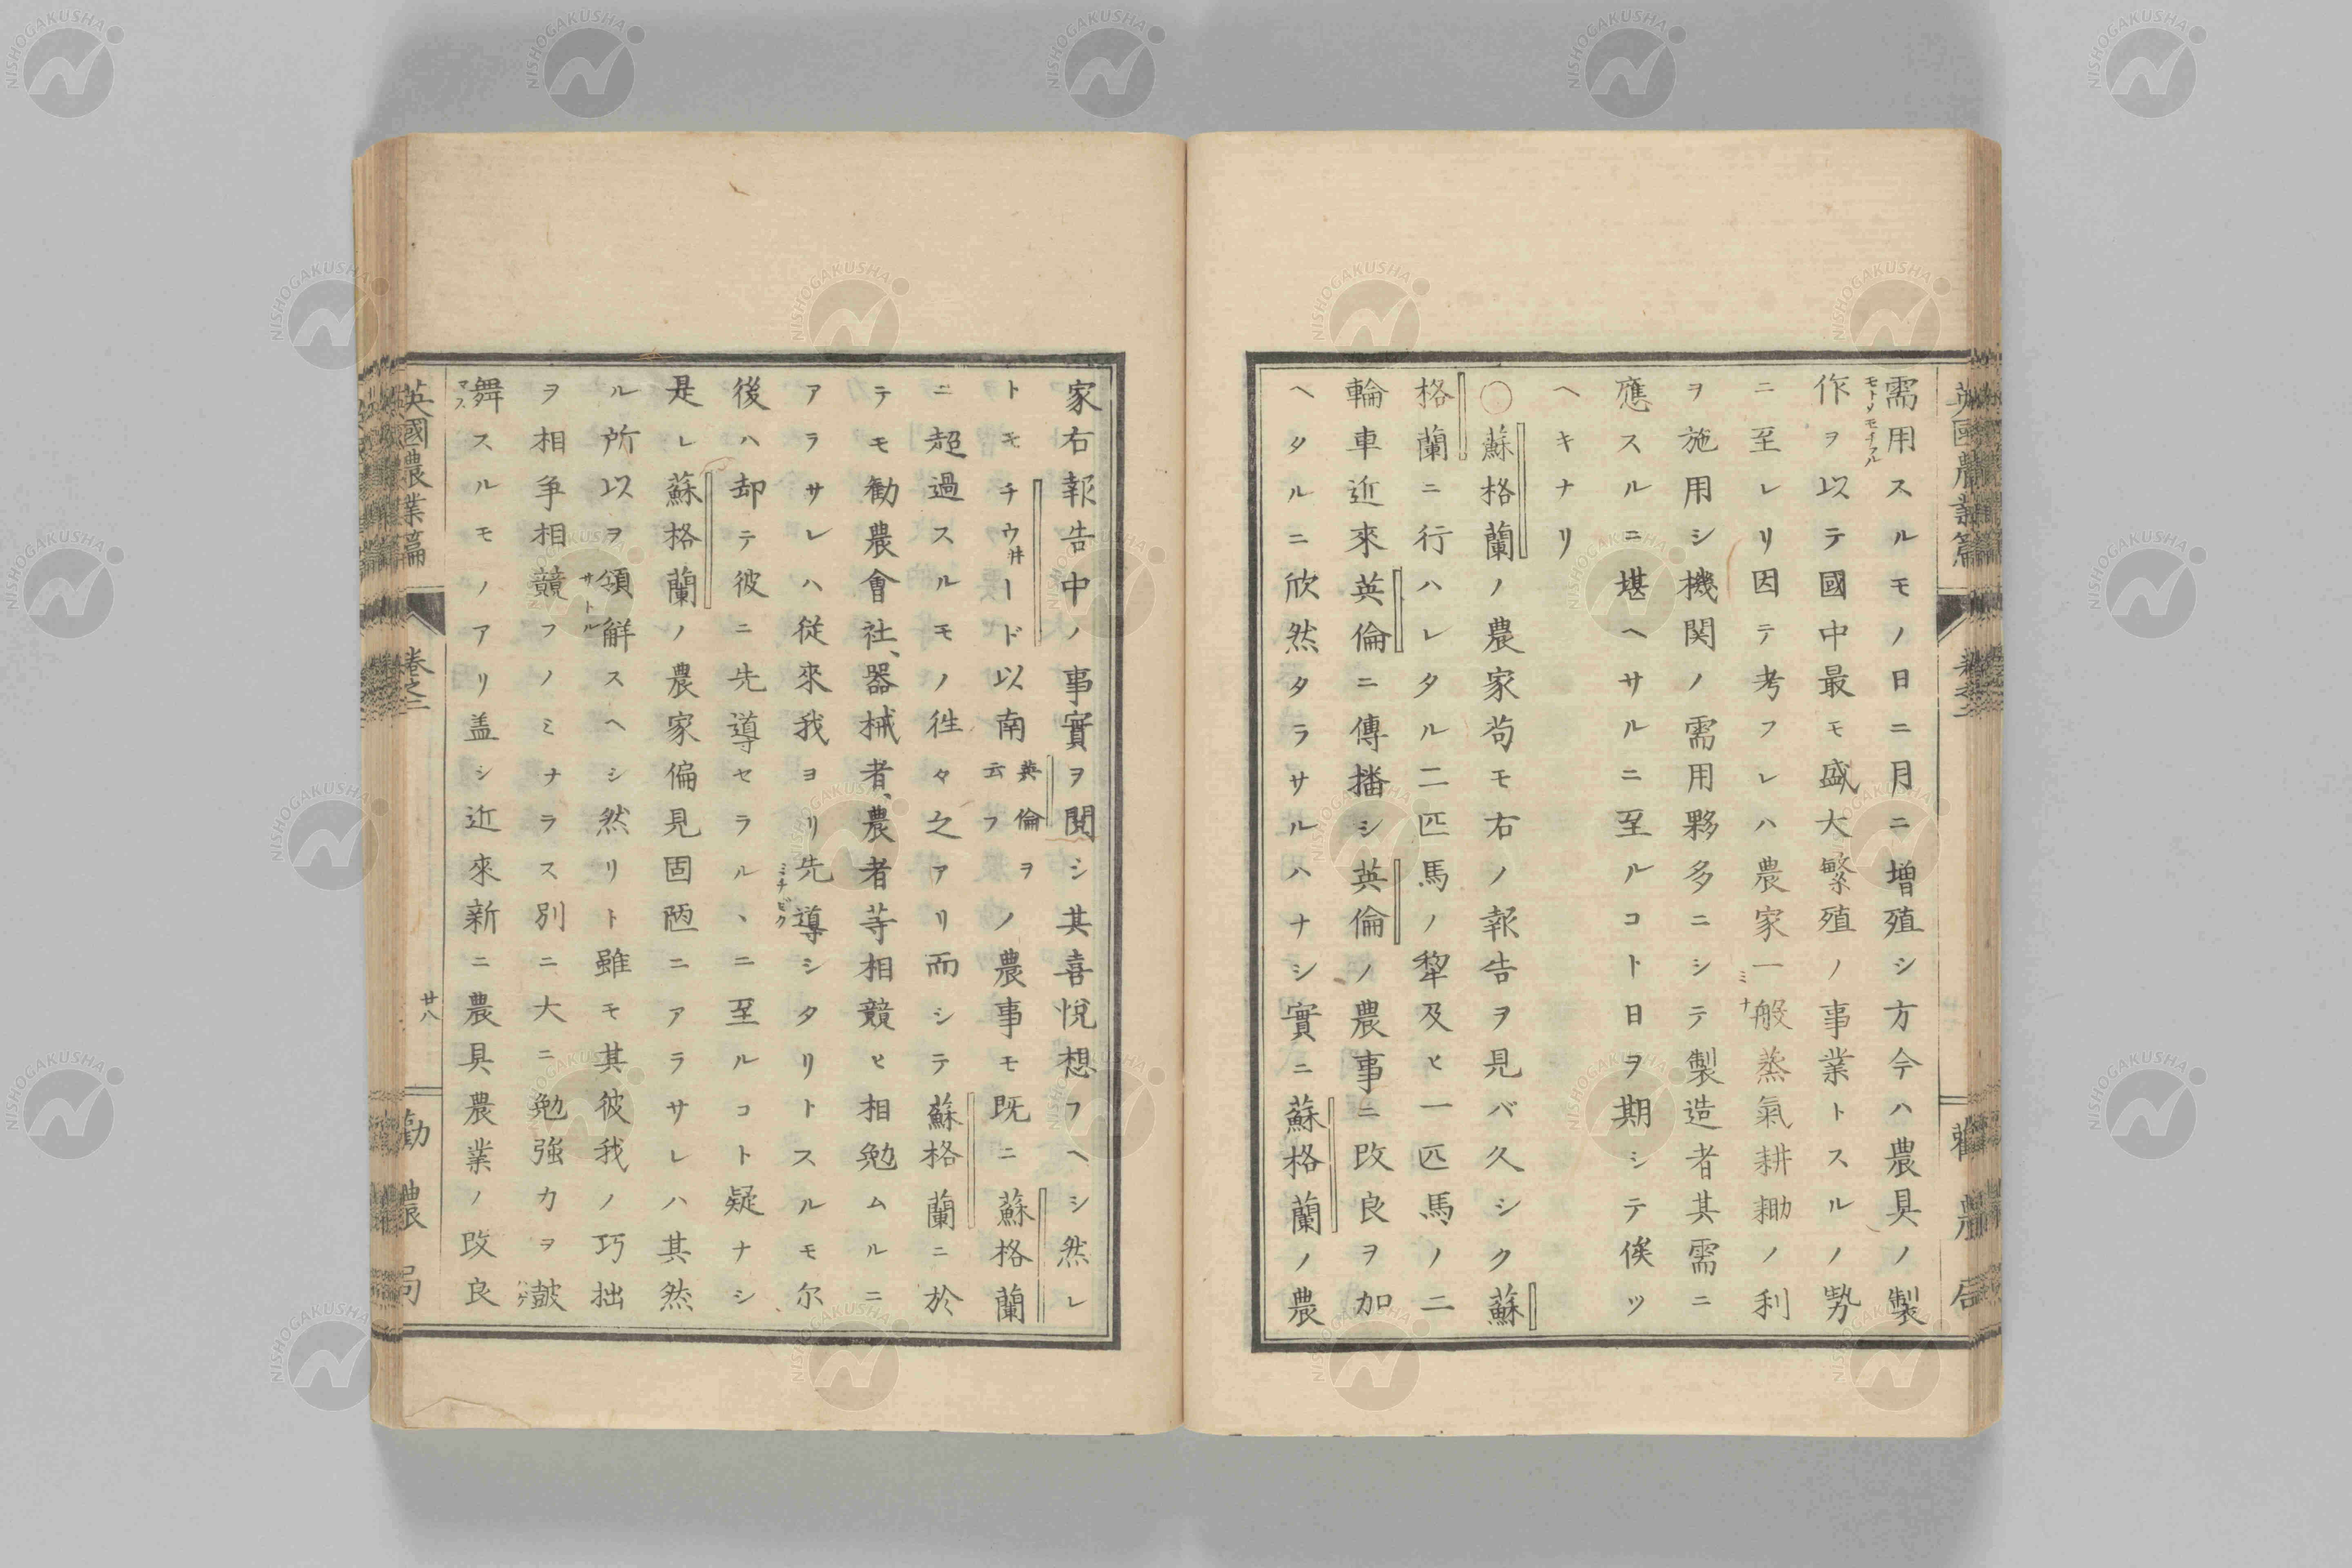 需用スルモノ日ニ月ニ増殖シ方今ハ農具ノ製
モトメモチフル
作ヲ以テ國中最モ盛大繁殖ノ事業トスルノ勢
ニ至レリ因テ考フレハ農家一般蒸氣耕耡ノ利
ミナ
ヲ施用シ機関ノ需用夥多ニシテ製造者其需ニ
應スルニ堪ヘサルニ至ルコト日ヲ期シテ俟ツ
ヘキナリ
○蘇格蘭ノ農家苟モ右ノ報告ヲ見バ久シク蘇
格蘭ニ行ハレタル二匹馬ノ犂及ヒ一匹馬ノ二
輪車近來英倫ニ傳播シ英倫ノ農事ニ改良ヲ加
ヘタルニ欣然タラサルハナシ實ニ蘇格蘭ノ農
家右報告中ノ事實ヲ閲シ其喜悅想フヘシ然レ
トモチウ井ード以南英倫ヲ云フノ農事モ既ニ蘇格蘭
ニ超過スルモノ徃々之アリ而シテ蘇格蘭ニ於
テモ勸農會社、器械者、農者等相競ヒ相勉ムルニ
アラサレハ従來我ヨリ先導シタリトスルモ尔
ミチビク
後ハ却テ彼ニ先導セラルヽニ至ルコト疑ナシ
是レ蘇格蘭ノ農家偏見固陋ニアラサレハ其然
ル所以ヲ領解スヘシ然リト雖モ其彼我ノ巧拙
サトル
ヲ相争相競フノミナラス別ニ大ニ勉強力ヲ鼓
舞スルモノアリ盖シ近來新ニ農具農業ノ改良
英國農業篇
卷之二
廿八
勸農局
NISHOGAKUSHA